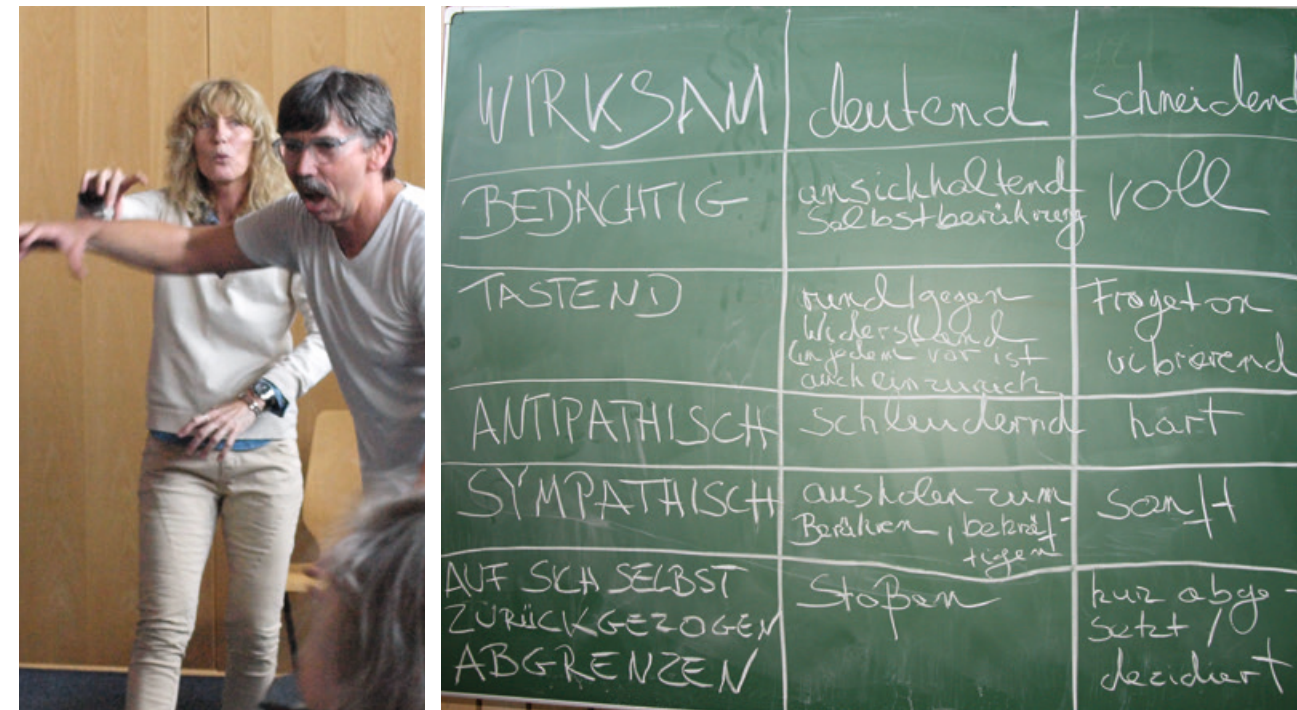 WIRKSAM
deutend
schneidend
BEDÄCHTIG
ansichhaltend
Selbstberührung
voll
TASTEND
rund/gegen
Widerstand
(in jedem vor ist
auch ein zurück
Frageton
vibrierend
ANTIPATHISCH
schleudernd
hart
SYMPATHISCH
ausholen zum
Berühren, bekräf-
tigen
sanft
AUF SICH SELBST
ZURÜCKGEZOGEN
ABGRENZEN
Stoßen
kurz abge-
setzt /
dezidiert